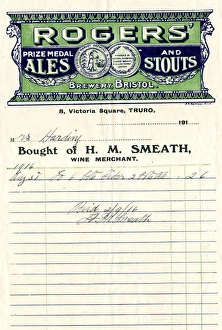 ROGERS'
PRIZE MEDAL AND
ALES STOUTS
BREWERY, BRISTOL.
8, Victoria Square, TRURO, 191
Harding
Bought of H. M. SMEATH,
WINE MERCHANT.
1916
2 6
Paid
H M Smeath